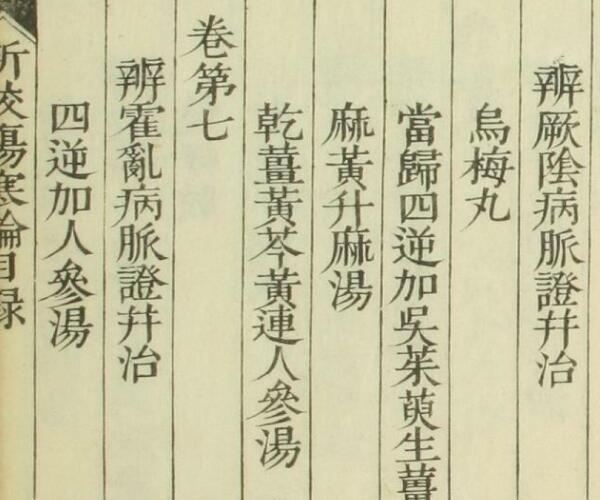 辨厥陰病脈證幷治
烏梅丸
當歸四逆加吳茱萸生薑
麻黃升麻湯
乾薑黃芩黃連人參湯
卷第七
辨霍亂病脈證幷治
四逆加人參湯
析校傷寒論目録